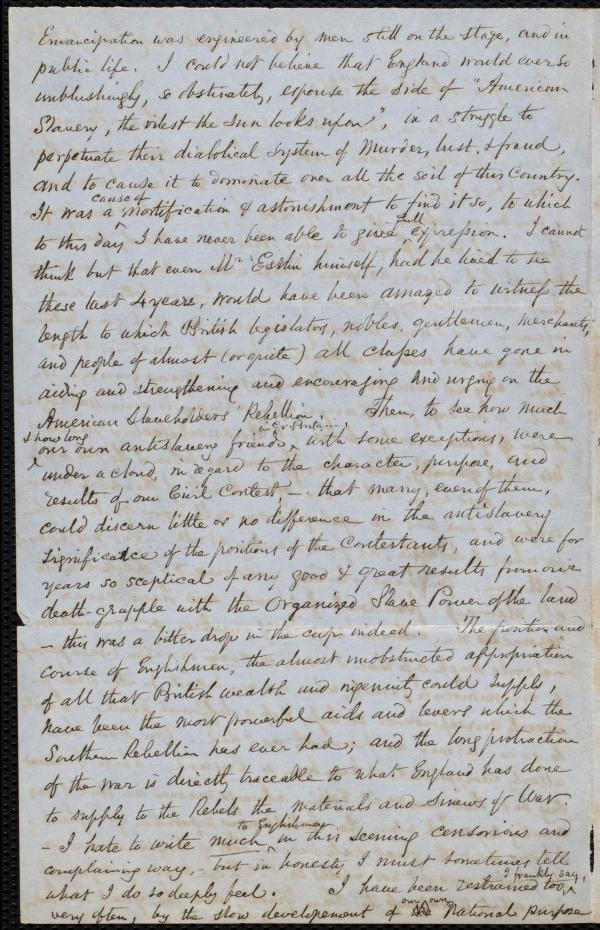 Emancipation was engineered by men still on the stage, and in
public life. I could not believe that England would ever so
unblushingly, so obstinately, espouse the side of "American
Slavery, the vilest the sun looks upon", in a struggle to
perpetuate their diabolical system of Murder, lust, & fraud,
and to cause it to dominate over all the soil of this Country.
cause of
It was a mortification & astonishment to find it so, to which
full
to this day I have never been able to give expression. I cannot
think but that even Mr Estlin himself, had he lived to see
these last 4 years, would have been amazed to witness the
length to which British legislators, nobles, gentlemen, merchants,
and people of almost (or quite) all classes have gone in
aiding and strengthening and encouraging and urging on the
American Slaveholders' Rebellion. Then, to see how much
& how long in Gt. Britain,
our own antislavery friends, with some exceptions, were
under a cloud, in regard to the character, purpose, and
results of our Civil Contest, - that many, even of them,
could discern little or no difference in the antislavery
significance of the positions of the Contestants, and were for
years so sceptical of any good & great results from our
death-grapple with the Organized Slave Power of the land
- this was a bitter drop in the cup indeed. The position and
course of Englishmen, the almost unobstructed appropriation
of all that British wealth and ingenuity could supply,
have been the most powerful aids and levers which the
Southern Rebellion has ever had; and the long protraction
of the war is directly traceable to what England has done
to supply to the Rebels the materials and sinews of War.
to Englishmen
- I hate to write much in this seeming censorious and
complaining way, - but in honesty I must sometimes tell
I frankly say,
what I do so deeply feel. I have been restrained too,
our own
very often, by the slow developement of National purpose